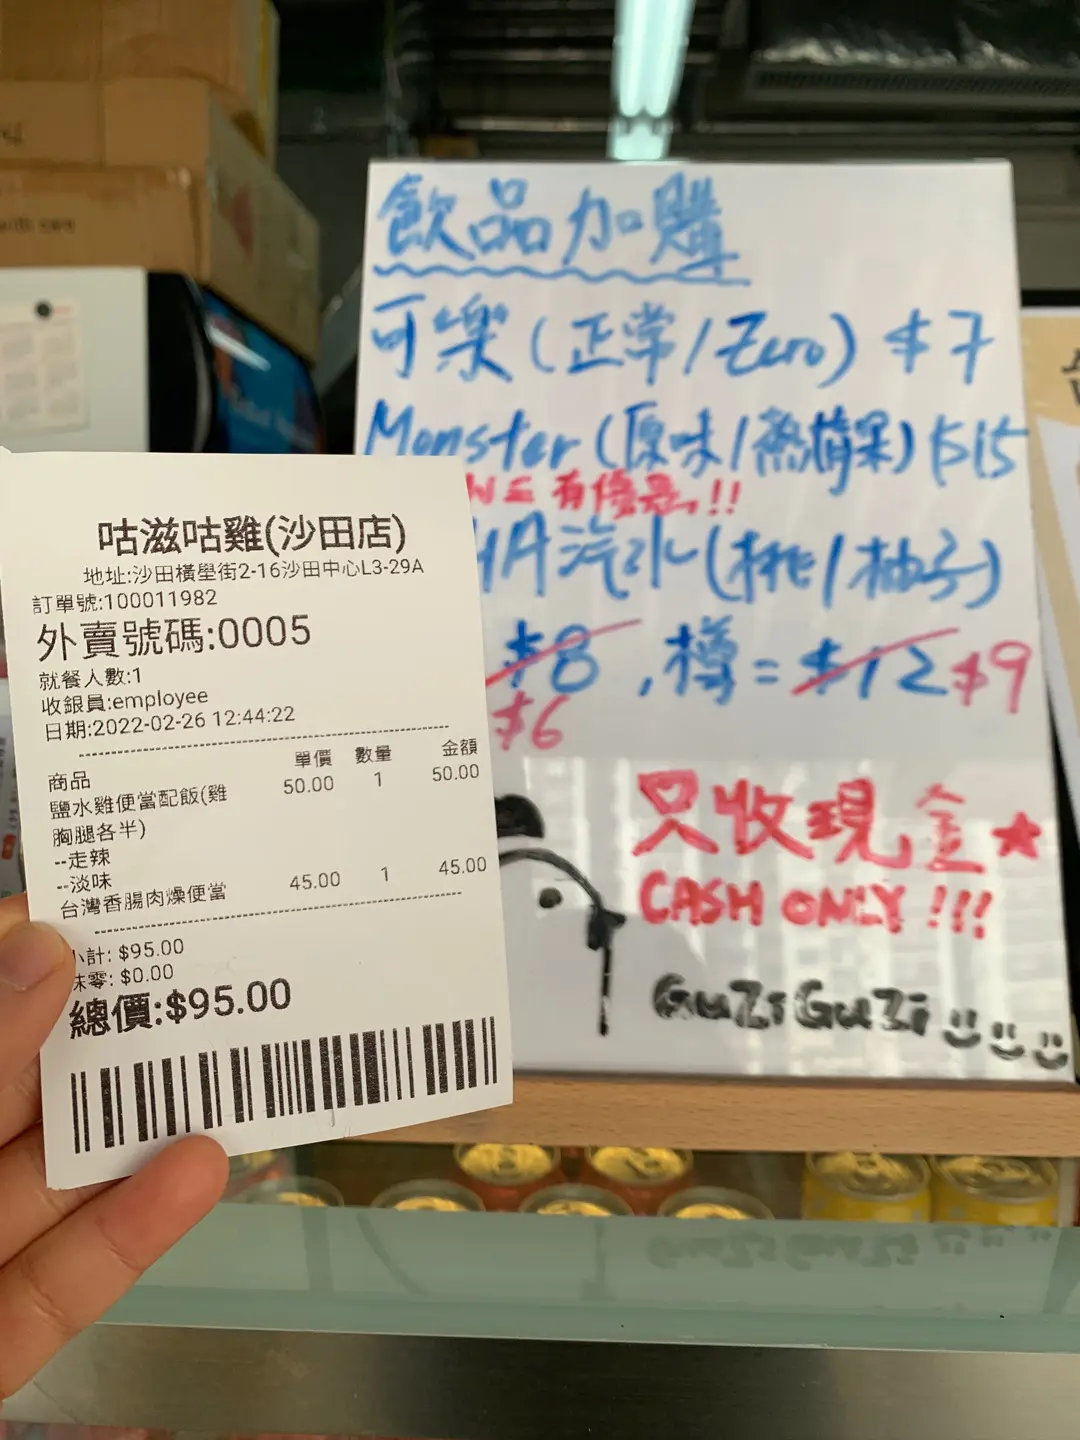 咕滋咕雞(沙田店)
地址:沙田橫壆街2-16沙田中心L3-29A
訂單號:100011982
外賣號碼:0005
就餐人數:1
收銀員:employee
日期:2022-02-26 12:44:22
商品 單價 數量 金額
鹽水雞便當配飯(雞 50.00 1 50.00
胸腿各半)
--走辣
--淡味
台灣香腸肉燥便當 45.00 1 45.00
小計: $95.00
抹零: $0.00
總價:$95.00
飲品加購
可樂(正常/Zero) $7
Monster(原味/熱情果) $15
有優惠!!
HA汽水(桃/柚子)
$8,樽=$12 $9
$6
只收現金★
CASH ONLY!!!
GuZiGuZi
with care